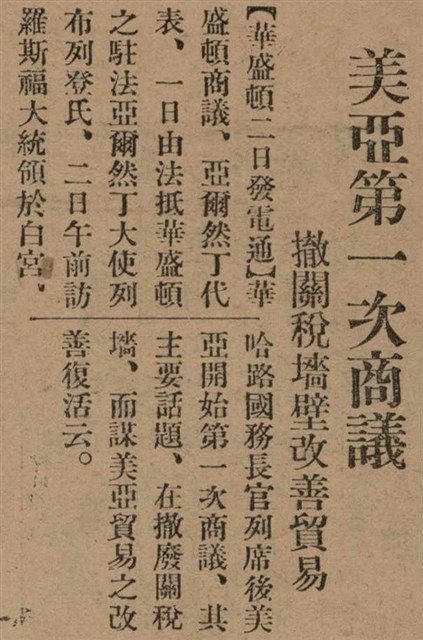 美亞第一次商議
撤關稅墻壁改善貿易
【華盛頓二日發電通】華
盛頓商議、亞爾然丁代
表、一日由法抵華盛頓
之駐法亞爾然丁大使列
布列登氏、二日午前訪
羅斯福大統領於白宮、
哈路國務長官列席後美
亞開始第一次商議、其
主要話題、在撤廢關稅
墻、而謀美亞貿易之改
善復活云。